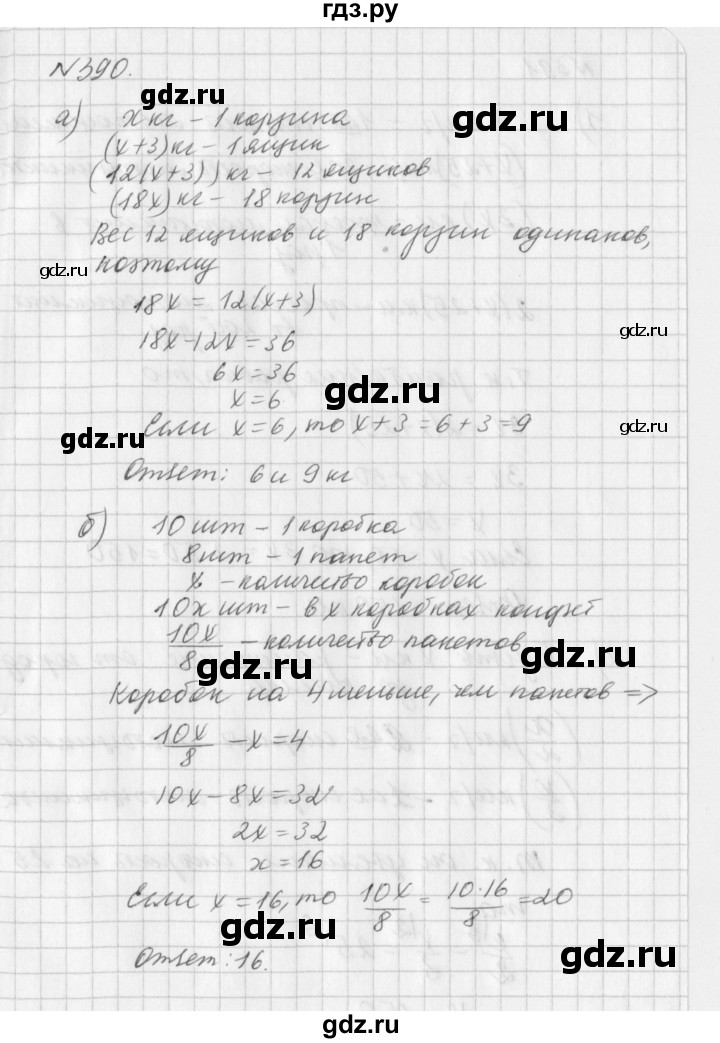 гдз.ру
№390.
а) x кг - 1 корзина
gdz.ru
(x+3) кг - 1 ящик
(12(x+3)) кг - 12 ящиков
(18x) кг - 18 корзин
Вес 12 ящиков и 18 корзин одинаков,
gdz.ru
поэтому
18x = 12(x+3)
gdz.ru
18x-12x=36
6x=36
gdz.ru
x=6
Если x=6, то x+3=6+3=9
gdz.ru
gdz.ru
Ответ: 6 и 9 кг
б) 10 шт - 1 коробка
gdz.ru
8 шт - 1 пакет
x - количество коробок
10x шт - в x коробках конфет
10x/8 - количество пакетов
gdz.ru
gdz.ru
Коробок на 4 меньше, чем пакетов =>
10x/8 - x = 4
gdz.ru
10x-8x=32
2x=32
x=16
Если x=16, то 10x/8 = 10·16/8 = 20
gdz.ru
Ответ: 16.
gdz.ru
gdz.ru